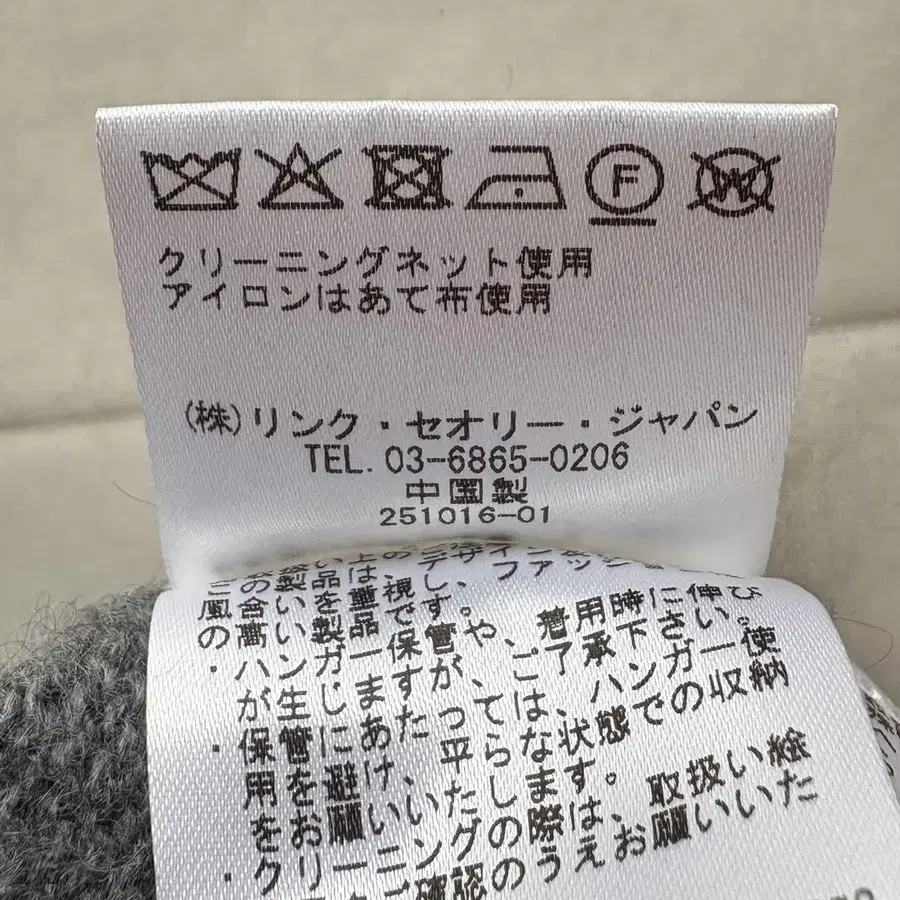 クリーニングネット使用
アイロンはあて布使用
(株)リンク・セオリー・ジャパン
TEL. 03-6865-0206
中国製
251016-01
・ハンガー保管や、着用時に伸び
が生じますが、ご了承下さい。
・保管にあたっては、ハンガー使
用を避け、平らな状態での収納
をお願いいたします。
・クリーニングの際は、取扱い絵
ご確認のうえお願いいた